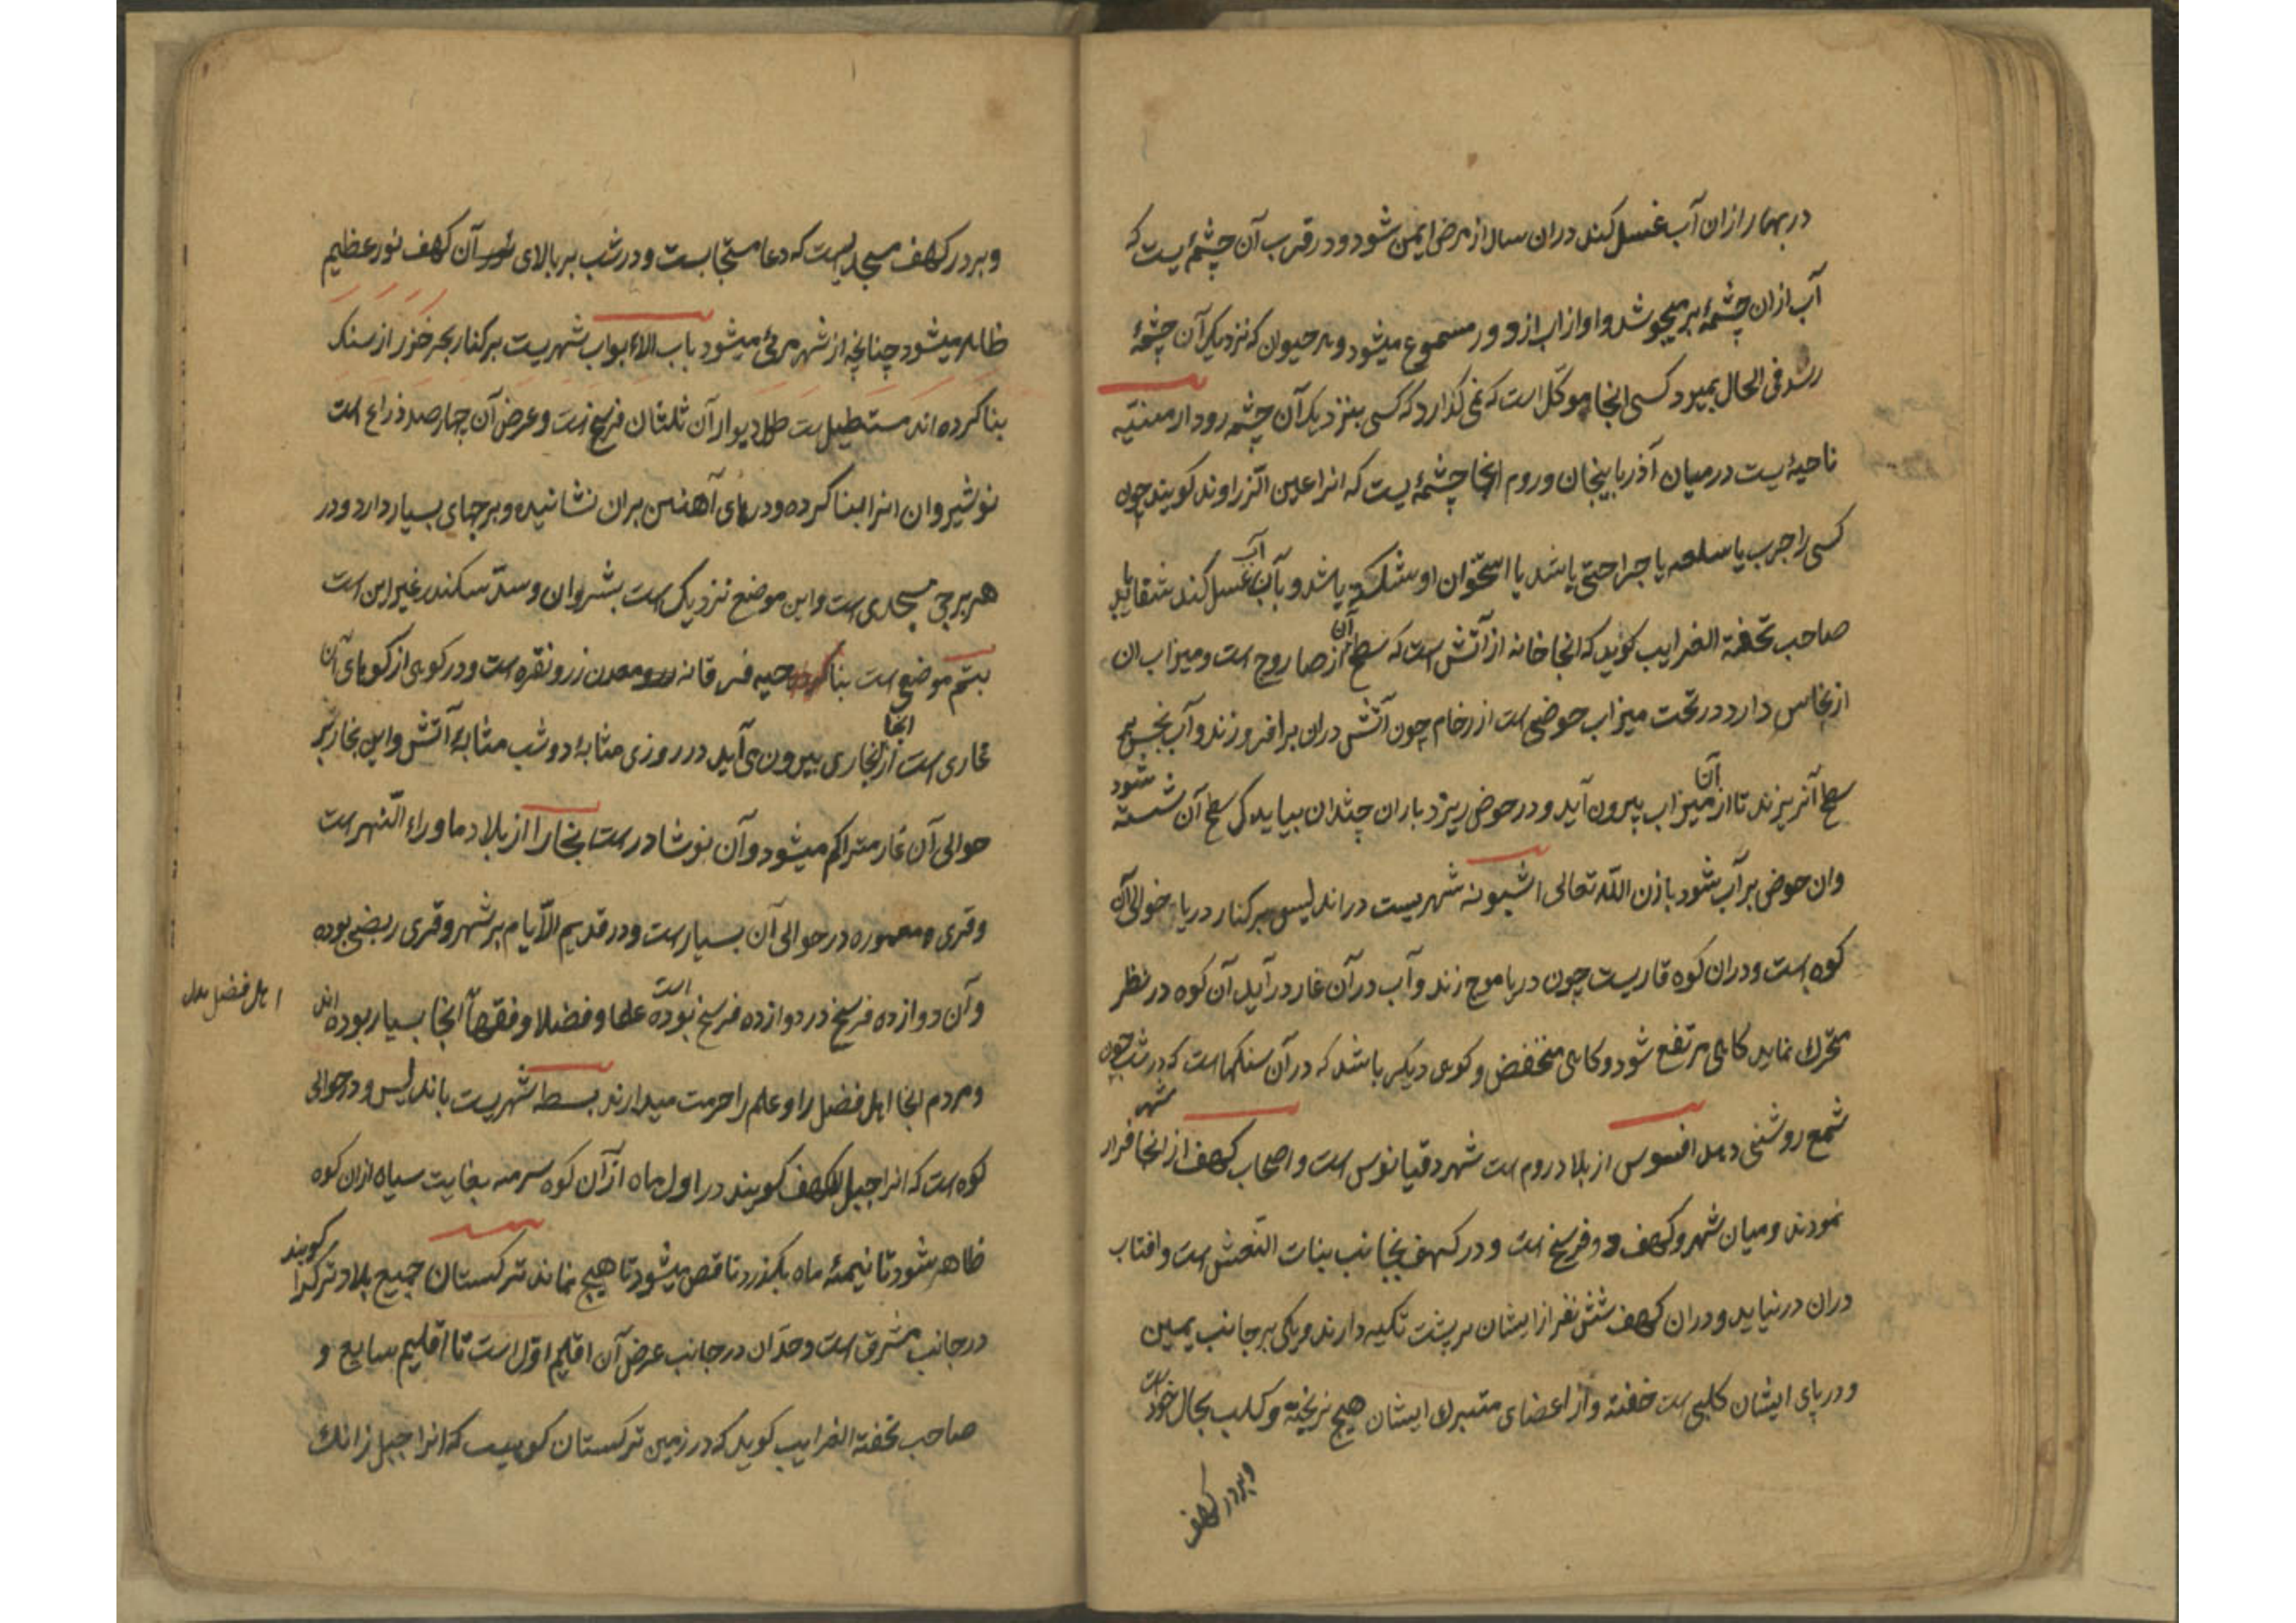 در بهار ازان آب غسل کند دران سال از مرض ایمن شود و در قرب آن چشمهٔ یست که
آب ازان چشمهٔ بر میجوشد و اواز اب از دور مسموع میشود و هر حیوان که نزدیک آن چشمهٔ
رسد فی الحال بمیرد کسی انجا موکل است که نمی کذارد که کسی بنزدیک آن چشمه رود ارمنیه
ناحیهٔ یست در میان آذربایجان و روم انجا چشمهٔ یست که انرا عین الزراوند کویند چون
کسی را جرب یا سلعه یا جراحتی باشد یا استخوان او شکسته باشد و بآن آب غسل کند شفا یابد
صاحب تحفة الغرایب کوید که انجا خانه از آتش است که سطح آن از صاروج است و میزاب ان
از نحاس دارد در تحت میزاب حوضی است از رخام چون آتش دران برافروزند و آب نجس بر
سطح آن ریزند تا از آن میزاب بیرون آید و در حوض ریزد باران چندان بیاید که سطح آن شسته شود
وان حوض پر آب شود باذن الله تعالی اشبونه شهریست در اندلیس بر کنار دریا حوالی آن
کوه است و دران کوه غاریست چون دریا موج زند و آب در آن غار در آید آن کوه در نظر
متحرک نماید کاهی مرتفع شود و کاهی منخفض و کوهی دیکر باشد که در آن سنکها است که در شب چون
شمع روشنی دهد افسوس از بلاد روم است شهر دقیانوس است و اصحاب کهف از انجا فرار
نمودند و میان شهر و کهف دو فرسخ است و در کهف بجانب بنات النعش است و افتاب
دران در نیاید و دران کهف شش نفر از ایشان بر پشت تکیه دارند و یکی بر جانب یمین
و در پای ایشان کلبی است خفته و از اعضای متبرک ایشان هیچ نریخته و کلب بحال خود است
و بر در کهف
و بر در کهف مسجدیست که دعا مستجابست و در شب بر بالای آن کهف نور عظیم
ظاهر میشود چنانچه از شهر مرئی میشود باب الابواب شهریست بر کنار بحر خزر از سنک
بنا کرده اند مستطیل است طول دیوار آن ثلثان فرسخ است و عرض آن چهار صد ذراع است
نوشیروان انرا بنا کرده و درهای آهنین بران نشانیده و برجهای بسیار دارد و در
هر برجی مسجدی است و این موضع نزدیک است بشروان و سد سکندر غیر این است
بتم موضعی است بناحیه فرقانه معدن زر و نقره است و در کوهی از کوهای آن
غاری است از انجا بخاری بیرون می آید در روزی مثابهٔ دود و شب مثابهٔ آتش و این بخار بر
حوالی آن غار متراکم میشود و آن نوشادر است بخارا از بلاد ماوراء النهر است
و قری و معموره در حوالی آن بسیار است و در قدیم الایام بر شهر و قری ربضی بوده
و آن دوازده فرسخ در دوازده فرسخ بوده است علما و فضلا و فقها انجا بسیار بوده اند
اهل فضل
و مردم انجا اهل فضل را و علم را حرمت میدارند بسطه شهریست باندلیس و در حوالی
کوه است که انرا جبل الکهف کویند در اول ماه از آن کوه سرمه بغایت سیاه ازان کوه
ظاهر شود تا نیمهٔ ماه بکذرد ناقص میشود تا هیچ نماند ترکستان جمیع بلاد ترک را کویند
در جانب مشرق است و حد آن در جانب عرض آن اقلیم اول است تا اقلیم سابع و
صاحب تحفة الغرایب کوید که در زمین ترکستان کوهیست که انرا جبل زانک